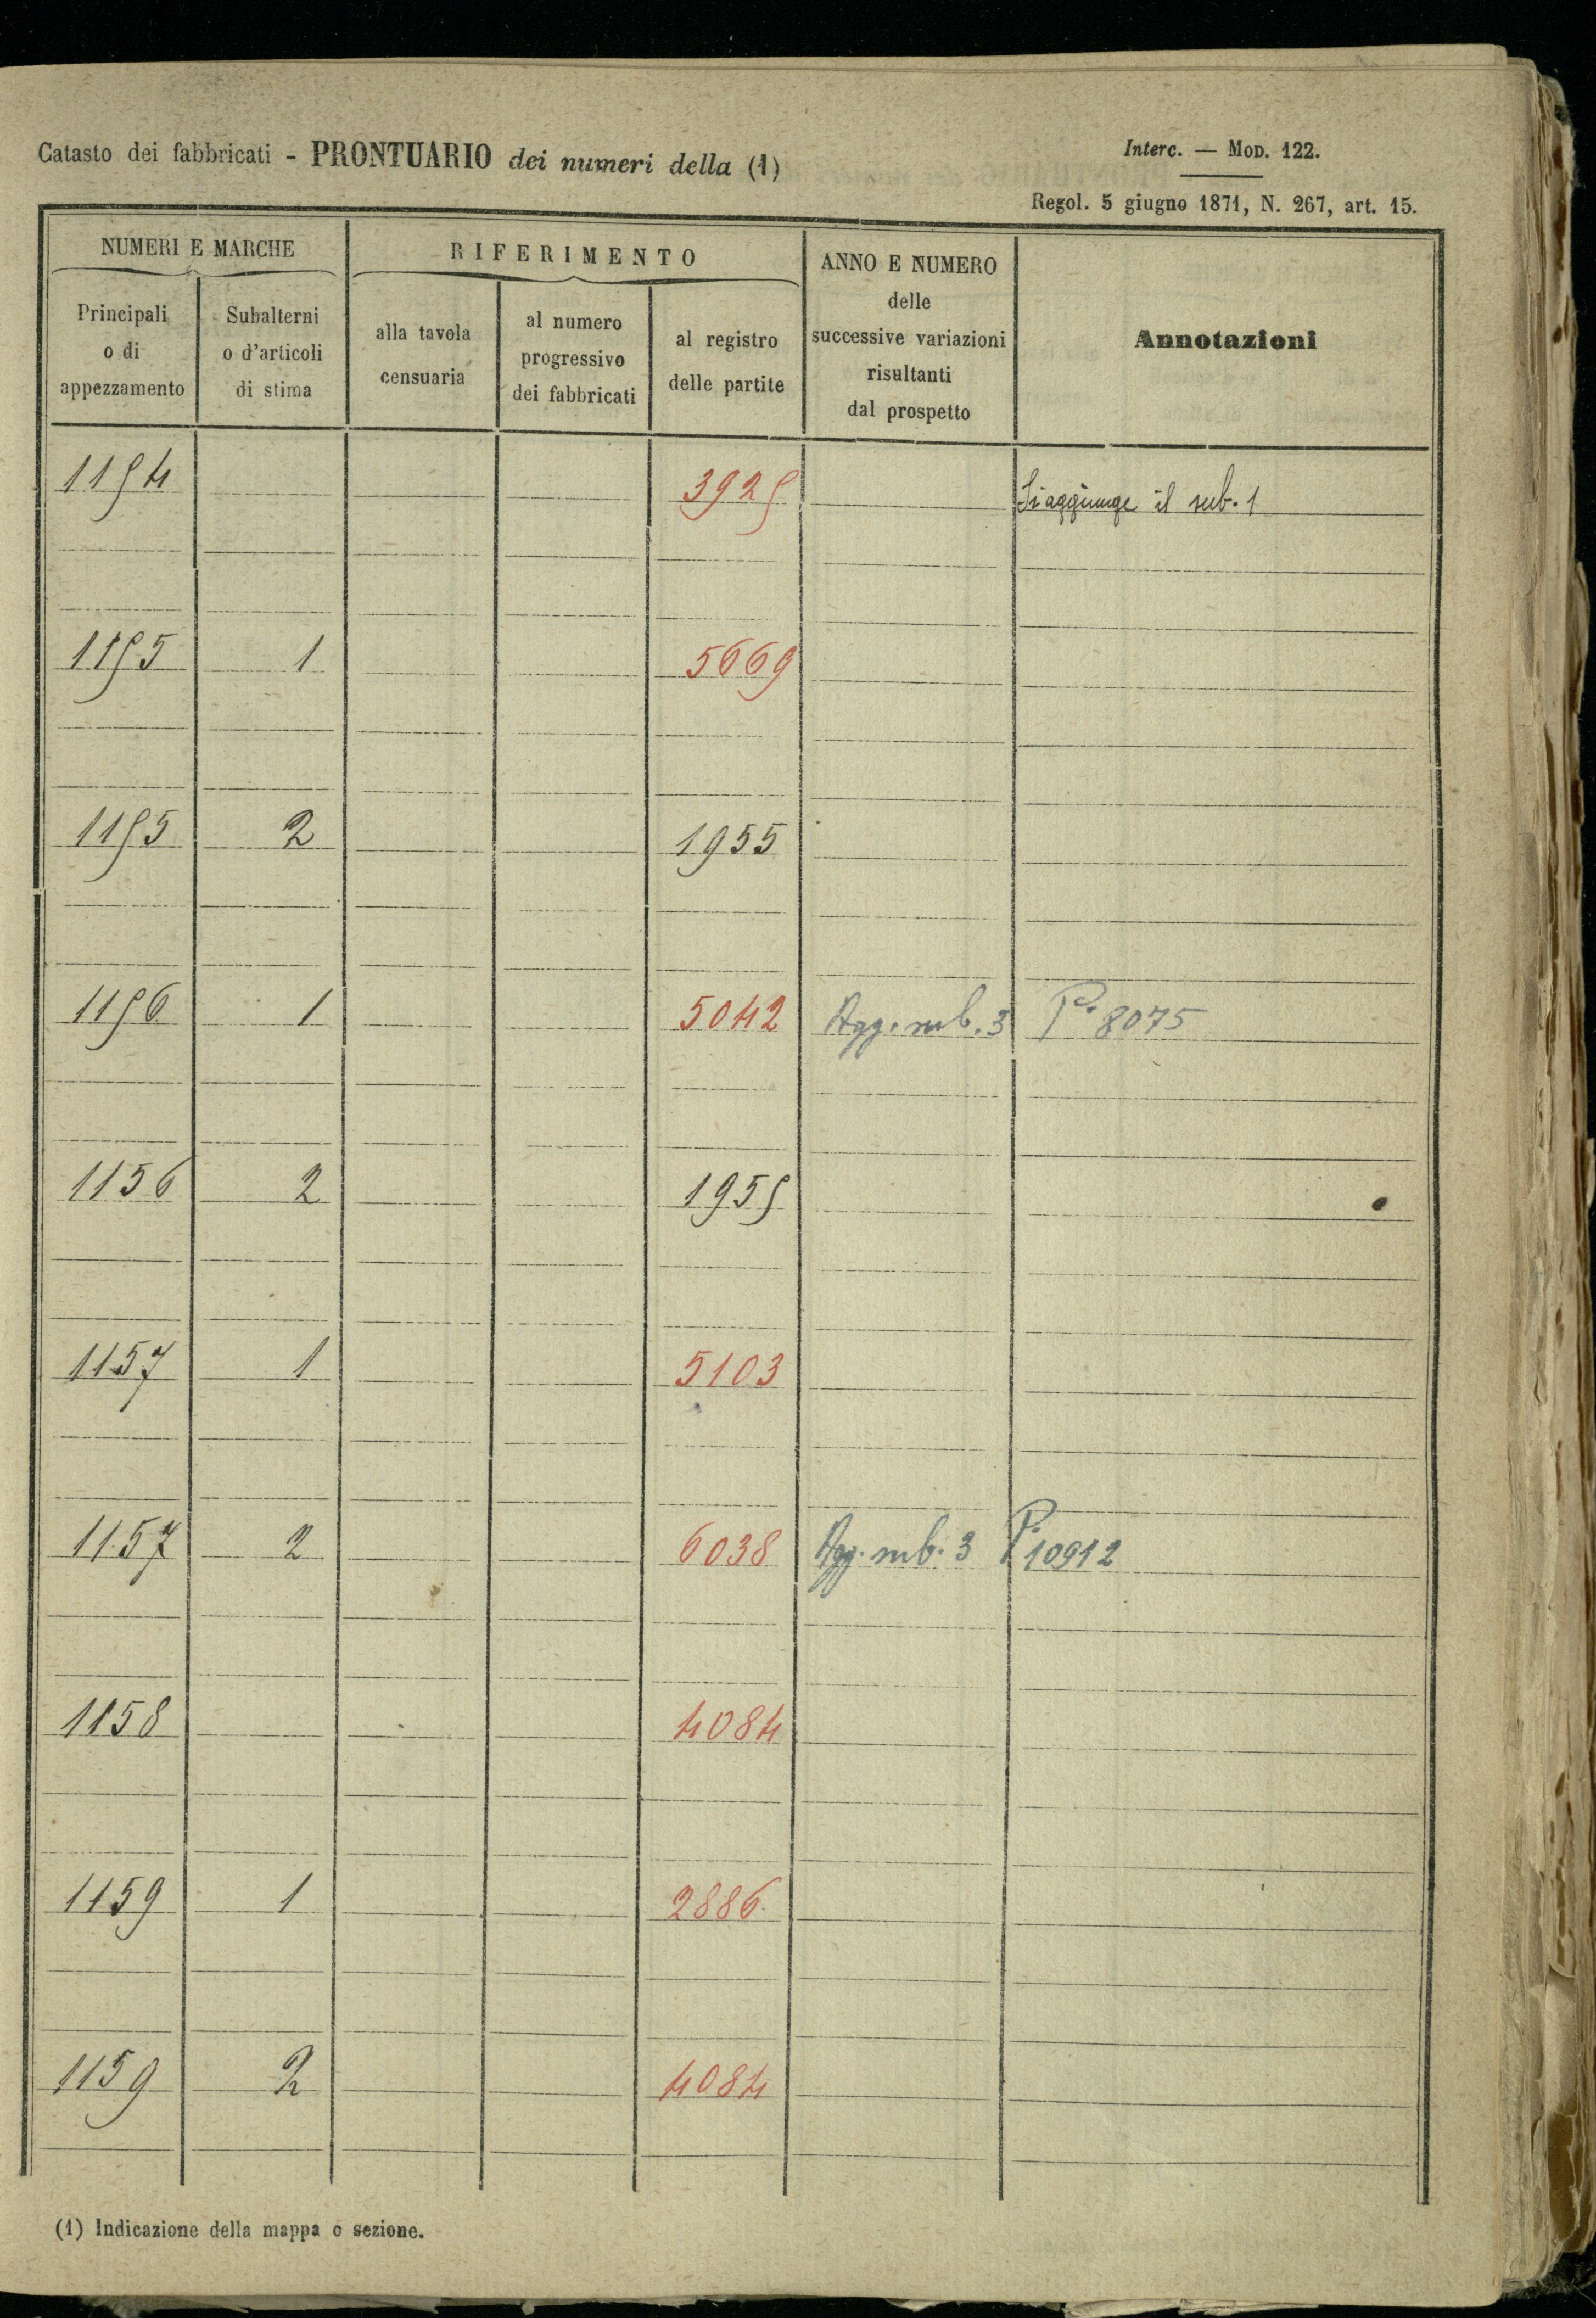 Catasto dei fabbricati - PRONTUARIO dei numeri della (1)
Interc. — Mod. 122.
Regol. 5 giugno 1871, N. 267, art. 15.
NUMERI E MARCHE
RIFERIMENTO
ANNO E NUMERO delle successive variazioni risultanti dal prospetto
Annotazioni
Principali o di appezzamento
Subalterni o d'articoli di stima
alla tavola censuaria
al numero progressivo dei fabbricati
al registro delle partite
1154 3925 Si aggiunge il sub. 1
1155 1 5669
1155 2 1955
1156 1 5042 Agg. sub. 3 P. 8075
1156 2 1955
1157 1 5103
1157 2 6038 Agg. sub. 3 P. 10912
1158 4084
1159 1 2886
1159 2 4084
(1) Indicazione della mappa o sezione.